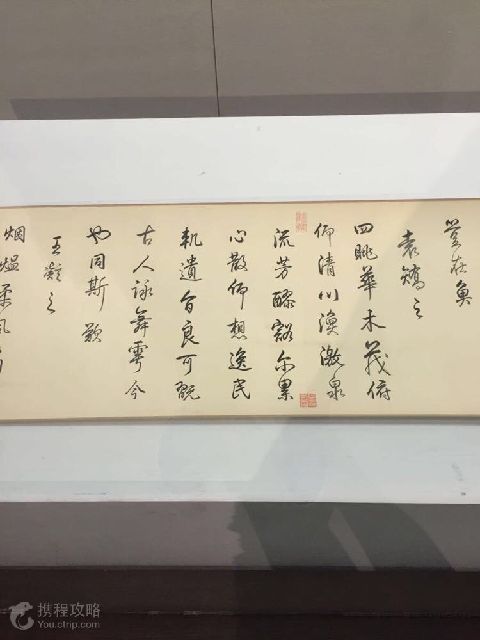 豈在魚
袁矯之
四眺華木茂俯
仰清川渙激泉
流芳醪豁尔累
心散仰想逸民
軌遺音良可翫
古人詠舞雩今
也同斯歡
王凝之
烟熅柔風
携程攻略
You.ctrip.com